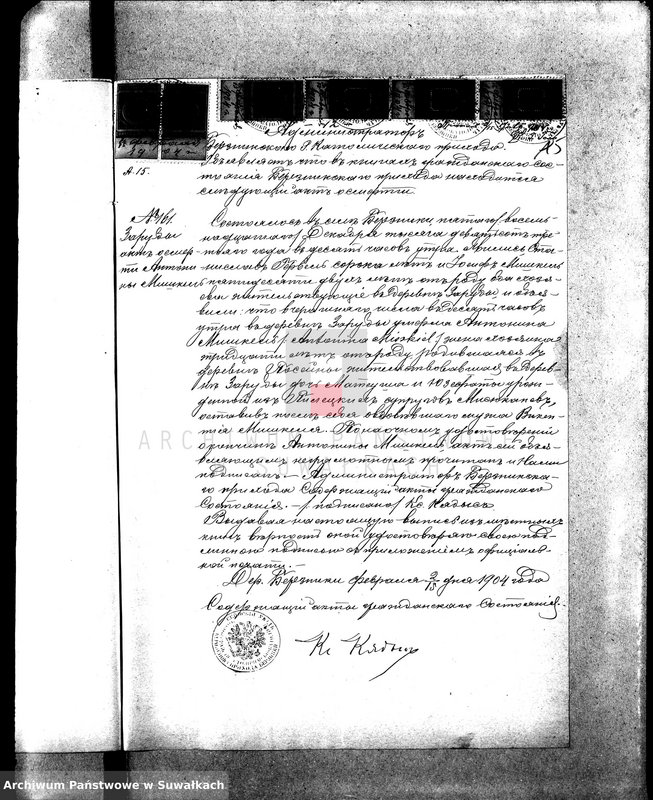 Администраторъ
Березникскаго Р Католическаго прихода
объявляетъ что въ книгахъ гражданскаго сос-
тоянія Березникскаго прихода находится
слѣдующій актъ о смерти
А. 15.
№ 161.
Заруды
актъ о смер-
ти Антони-
ны Мишкель
Состоялось въ селѣ Березники пятаго/восем-
надцатаго/ Декабря тысяча девятьсотъ тре-
тьяго года въ десять часовъ утра. Явились Ста-
ниславъ сорока лѣтъ и Іосифъ Мишкель
пятидесяти двухъ лѣтъ отъ роду оба хозяе-
ва жительствующіе въ деревнѣ Заруды, и объя-
вили что вчерашняго числа въ десять часовъ
утра въ деревнѣ Заруды умерла Антонина
Мишкель/ Antonina Miszkiel/ жена хозяина
тридцати лѣтъ отъ роду родившаяся въ
деревнѣ жительствовавшая въ дерев-
нѣ Заруды дочь Матеуша и урож-
денной изъ супруговъ
оставивъ послѣ себя овдовѣвшаго мужа Викен-
тія Мишкеля. По наочномъ удостовѣреніи
о кончинѣ Антонины Мишкель актъ сей объя-
вляющимъ неграмотнымъ прочитанъ и Нами
подписанъ. — Администраторъ Березникска-
го прихода Содержащій акты гражданскаго
Состоянія. —/ подписано/ Кс. Кядысъ
Выдавая настоящую выпись изъ
книгъ вѣрность оной удостовѣряю своею под-
писью съ приложеніемъ официаль-
ной печати. —
Дер. Березники февраля 2/15 дня 1904 года
Содержащій акты гражданскаго состоянія.
Кс Кядысъ
ARCHIWUM PAŃSTWOWE
W SUWAŁKACH
Archiwum Państwowe w Suwałkach